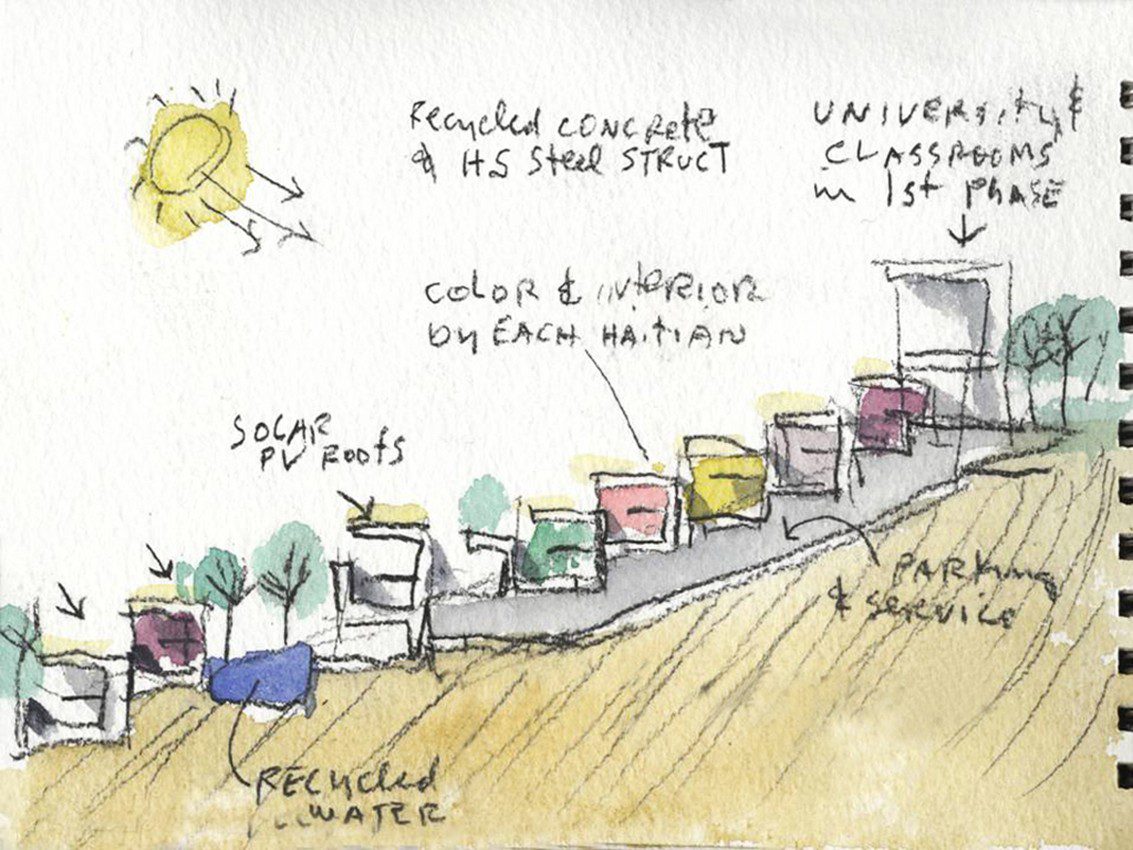 Recycled CONCRete
& HS Steel STRUCT
UNIVERSity &
CLASSROOMS
in 1st PHASE
COLOR & iNteRIOR
by EACH HAitiAN
SOLAR
PV ROOfS
PARKing
& SeRViCe
RECYcled
WATER